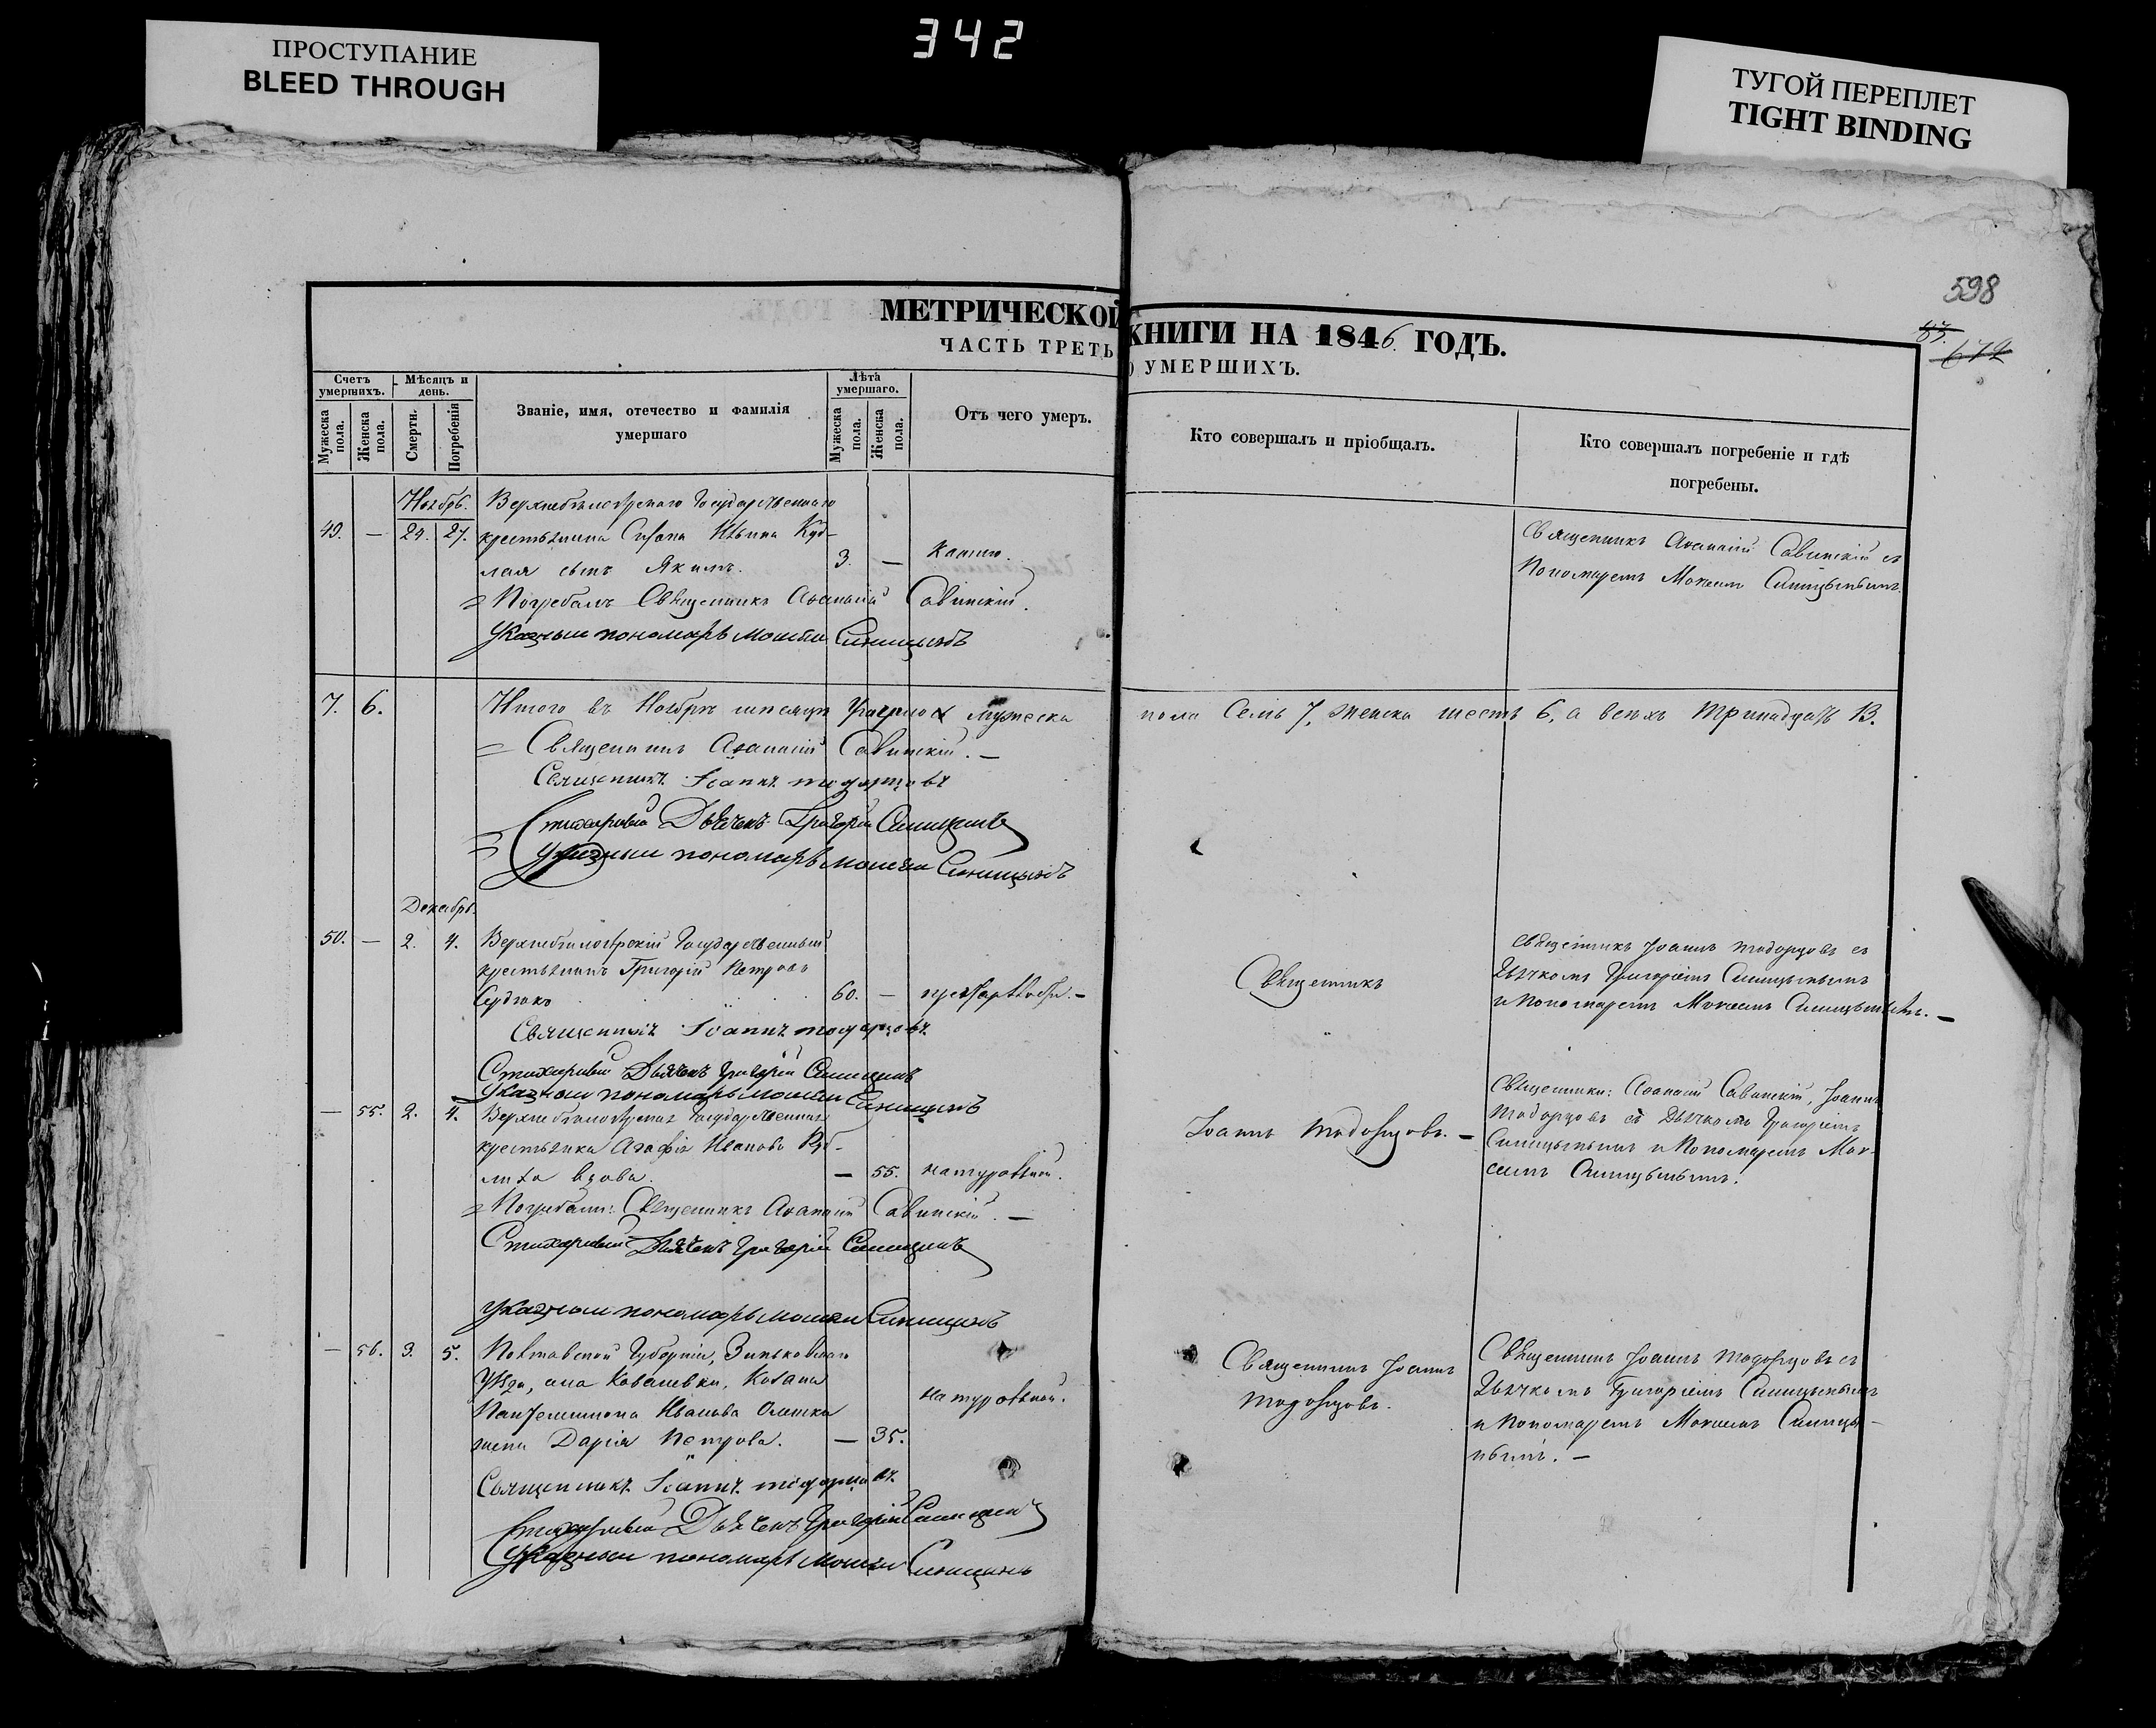 ПРОСТУПАНИЕ
BLEED THROUGH
342
ТУГОЙ ПЕРЕПЛЕТ
TIGHT BINDING
598
МЕТРИЧЕСКОЙ КНИГИ НА 1846. ГОДЪ.
ЧАСТЬ ТРЕТЬ
О УМЕРШИХЪ.
Счетъ умершихъ.
Мѣсяцъ и день.
Званіе, имя, отечество и фамилія умершаго
Лѣта умершаго.
Отъ чего умеръ.
Кто совершалъ и пріобщалъ.
Кто совершалъ погребеніе и гдѣ погребены.
Мужеска пола.
Женска пола.
Смерти.
Погребенія
Мужеска пола.
Женска пола.
Ноябрь.
49. — 24. 27.
Государственнаго
крестьянина Ильина Куд-
лая сынъ Якимъ. 3. —
Священникъ Аѳанасій Савинскій съ
Пономаремъ Синицынымъ.
= Погребалъ Священникъ Аѳанасій Савинскій.
Указный пономарь Синицынъ
7. 6. Итого въ Ноябрѣ умерло мужеска пола Семь 7, женска шесть 6, а всехъ тринадцать 13.
= Священникъ Аѳанасій Савинскій. —
Священникъ Іоаннъ
Стихарный Дьячекъ Григорій Синицынъ
Указный пономарь Синицынъ
Декабрь.
50. — 2. 4.
Государственный
крестьянинъ Григорій Петровъ
60. —
Священникъ
Священникъ Іоаннъ съ
Дьячкомъ Григоріемъ Синицынымъ
и Пономаремъ Синицынымъ. —
Священникъ Іоаннъ
Стихарный Дьячекъ Григорій Синицынъ
Указный пономарь Синицынъ
— 55. 2. 4.
Государственная
крестьянка Агафія Иванова
вдова. — 55. натуральной.
Іоаннъ
Священники: Аѳанасій Савинскій, Іоаннъ
съ Дьячкомъ Григоріемъ
Синицынымъ и Пономаремъ
Синицынымъ.
= Погребали: Священникъ Аѳанасій Савинскій. —
Стихарный Дьячекъ Григорій Синицынъ
Указный пономарь Синицынъ
— 56. 3. 5.
Полтавской Губерніи, Зиньковскаго
Уѣзда, села Ковалевки, Козака
Пантелимона Иванова
жена Дарія Петрова. — 35.
натуральной.
Священникъ Іоаннъ
Священникъ Іоаннъ съ
Дьячкомъ Григоріемъ Синицынымъ
и Пономаремъ Синицы-
нымъ. —
Священникъ Іоаннъ
Стихарный Дьячекъ Григорій Синицынъ
Указный пономарь Синицынъ